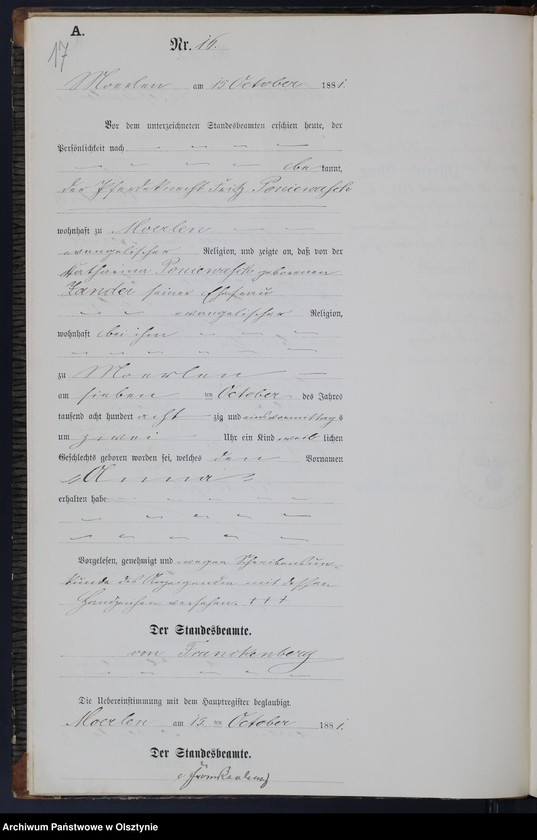 A.
17
Nr. 16.
Moerlen am 15 October 1881.
Vor dem unterzeichneten Standesbeamten erschien heute, der
Persönlichkeit nach
bekannt,
der Pferdeknecht Fritz Poniewasch
wohnhaft zu Moerlen
evangelischer Religion, und zeigte an, daß von der
Katharina Poniewasch geborenen
Zandei seiner Ehefrau
evangelischer Religion,
wohnhaft bei ihm
zu Moerlen
am sieben ten October des Jahres
tausend acht hundert acht zig und eins vormittags
um zwei Uhr ein Kind weib lichen
Geschlechts geboren worden sei, welches den Vornamen
Anna
erhalten habe
Vorgelesen, genehmigt und wegen Schreibensun-
kunde des Anzeigenden mit dessen
Handzeichen versehen. + + +
Der Standesbeamte.
von Franckenberg
Die Uebereinstimmung mit dem Hauptregister beglaubigt.
Moerlen am 15. ten October 1881.
Der Standesbeamte.
v Franckenberg
Archiwum Państwowe w Olsztynie